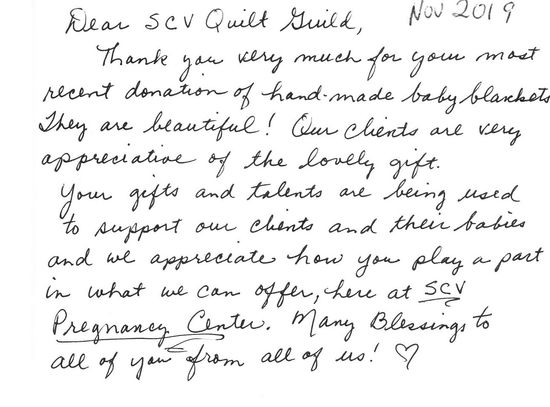 Dear SCV Quilt Guild, Nov 2019
Thank you very much for your most
recent donation of hand-made baby blankets
They are beautiful! Our clients are very
appreciative of the lovely gift.
Your gifts and talents are being used
to support our clients and their babies
and we appreciate how you play a part
in what we can offer, here at SCV
Pregnancy Center. Many Blessings to
all of you from all of us! ♡